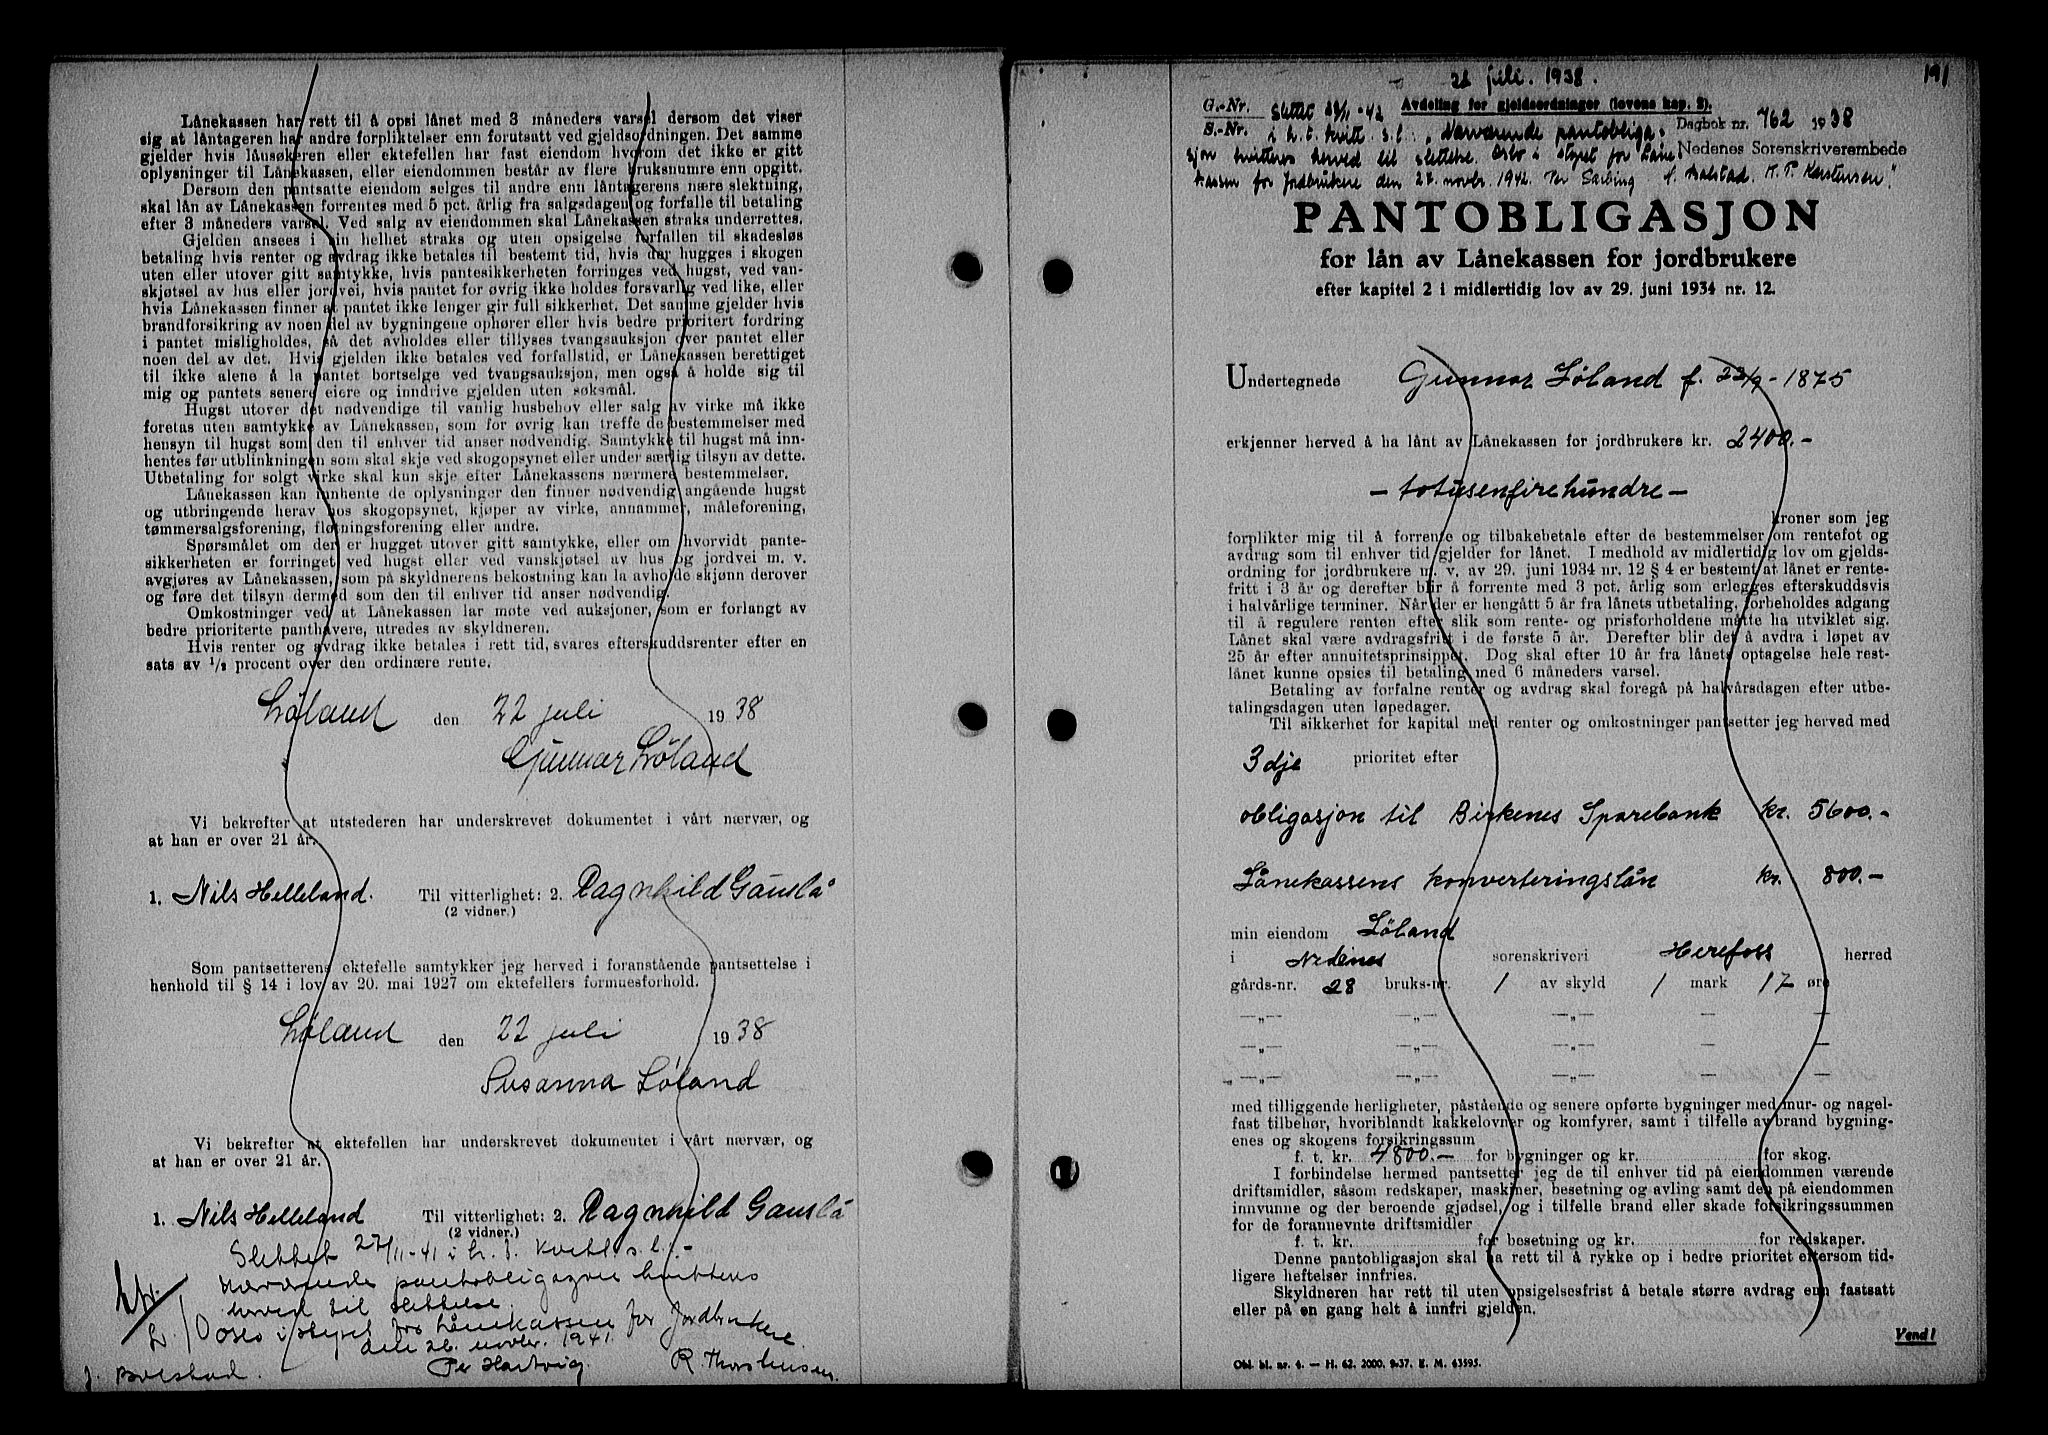 Lånekassen har rett til å opsi lånet med 3 måneders varsel dersom det viser
sig at låntageren har andre forpliktelser enn forutsatt ved gjeldsordningen. Det samme
gjelder hvis lånsøkeren eller ektefellen har fast eiendom hvorom det ikke er gitt
oplysninger til Lånekassen, eller eiendommen består av flere bruksnumre enn opgitt.
Dersom den pantsatte eiendom selges til andre enn låntagerens nære slektning,
skal lån av Lånekassen forrentes med 5 pct. årlig fra salgsdagen og forfalle til betaling
efter 3 måneders varsel. Ved salg av eiendommen skal Lånekassen straks underrettes.
Gjelden ansees i sin helhet straks og uten opsigelse forfallen til skadesløs
betaling hvis renter og avdrag ikke betales til bestemt tid, hvis der hugges i skogen
uten eller utover gitt samtykke, hvis pantesikkerheten forringes ved hugst, ved van-
skjøtsel av hus eller jordvei, hvis pantet for øvrig ikke holdes forsvarlig ved like, eller
hvis Lånekassen finner at pantet ikke lenger gir full sikkerhet. Det samme gjelder hvis
brandforsikring av noen del av bygningene ophører eller hvis bedre prioritert fordring
i pantet misligholdes, så det avholdes eller tillyses tvangsauksjon over pantet eller
noen del av det. Hvis gjelden ikke betales ved forfallstid, er Lånekassen berettiget
til ikke alene å la pantet bortselge ved tvangsauksjon, men også å holde sig til
mig og pantets senere eiere og inndrive gjelden uten søksmål.
Hugst utover det nødvendige til vanlig husbehov eller salg av virke må ikke
foretas uten samtykke av Lånekassen, som for øvrig kan treffe de bestemmelser med
hensyn til hugst som den til enhver tid anser nødvendig. Samtykke til hugst må inn-
hentes før utblinkningen som skal skje ved skogopsynet eller under særlig tilsyn av dette.
Utbetaling for solgt virke skal kun skje efter Lånekassens nærmere bestemmelser.
Lånekassen kan innhente de oplysninger den finner nødvendig angående hugst
og utbringende herav hos skogopsynet, kjøper av virke, annammer, måleforening,
tømmersalgsforening, fløtningsforening eller andre.
Spørsmålet om der er hugget utover gitt samtykke, eller om hvorvidt pante-
sikkerheten er forringet ved hugst eller ved vanskjøtsel av hus og jordvei m. v.
avgjøres av Lånekassen, som på skyldnerens bekostning kan la avholde skjønn derover
og føre det tilsyn dermed som den til enhver tid anser nødvendig.
Omkostninger ved at Lånekassen lar møte ved auksjoner, som er forlangt av
bedre prioriterte panthavere, utredes av skyldneren.
Hvis renter og avdrag ikke betales i rett tid, svares efterskuddsrenter efter en
sats av 1/2 procent over den ordinære rente.
Løland den 22 juli 1938
Gunnar Løland
Vi bekrefter at utstederen har underskrevet dokumentet i vårt nærvær, og
at han er over 21 år.
1. Nils Helleland. Til vitterlighet: 2. Ragnhild Gauslå
(2 vidner.)
Som pantsetterens ektefelle samtykker jeg herved i foranstående pantsettelse i
henhold til § 14 i lov av 20. mai 1927 om ektefellers formuesforhold.
Løland den 22 juli 1938
Susanna Løland
Vi bekrefter at ektefellen har underskrevet dokumentet i vårt nærvær, og
at han er over 21 år.
1. Nils Helleland Til vitterlighet: 2. Ragnhild Gauslå
(2 vidner.)
Slettet 27/11-41 i h. t. kvitt. s. l.:
nærværende pantobligasjon kvitteres
herved til slettelse.
Oslo i styret for Lånekassen for Jordbrukere
den 26. novbr. 1941.
Per Hartvig. R. Thorstensen
191
26 juli. 1938.
G.-Nr. Slettet 28/11-42 Avdeling for gjeldsordninger (lovens kap. 2).
S.-Nr. i h. t. kvitt. s. l.: "Nærværende pantobliga- Dagbok nr. 762 1938
sjon kvitteres herved til slettelse. Oslo i styret for Låne- Nedenes Sorenskriverembede
kassen for Jordbrukere den 27. novbr. 1942.
PANTOBLIGASJON
for lån av Lånekassen for jordbrukere
efter kapitel 2 i midlertidig lov av 29. juni 1934 nr. 12.
Undertegnede Gunnar Løland f. 23/9-1875
erkjenner herved å ha lånt av Lånekassen for jordbrukere kr. 2400.-
- totusenfirehundre -
kroner som jeg
forplikter mig til å forrente og tilbakebetale efter de bestemmelser om rentefot og
avdrag som til enhver tid gjelder for lånet. I medhold av midlertidig lov om gjelds-
ordning for jordbrukere m. v. av 29. juni 1934 nr. 12 § 4 er bestemt at lånet er rente-
fritt i 3 år og derefter blir å forrente med 3 pct. årlig som erlegges efterskuddsvis
i halvårlige terminer. Når der er hengått 5 år fra lånets utbetaling, forbeholdes adgang
til å regulere renten efter slik som rente- og prisforholdene måtte ha utviklet sig.
Lånet skal være avdragsfritt i de første 5 år. Derefter blir det å avdra i løpet av
25 år efter annuitetsprinsippet. Dog skal efter 10 år fra lånets optagelse hele rest-
lånet kunne opsies til betaling med 6 måneders varsel.
Betaling av forfalne renter og avdrag skal foregå på halvårsdagen efter utbe-
talingsdagen uten løpedager.
Til sikkerhet for kapital med renter og omkostninger pantsetter jeg herved med
3dje prioritet efter
obligasjon til Birkenes Sparebank kr. 5600.-
Lånekassens konverteringslån kr. 800.-
min eiendom Løland
i Nedenes sorenskriveri Herefoss herred
gårds-nr. 28 bruks-nr. 1 av skyld 1 mark 17 øre
—„— —„— —„— — —
—„— —„— —„— — —
—„— —„— —„— — —
med tilliggende herligheter, påstående og senere opførte bygninger med mur- og nagel-
fast tilbehør, hvoriblandt kakkelovner og komfyrer, samt i tilfelle av brand bygning-
enes og skogens forsikringssum
f. t. kr. 4800.- for bygninger og kr. for skog.
I forbindelse hermed pantsetter jeg de til enhver tid på eiendommen værende
driftsmidler, såsom redskaper, maskiner, besetning og avling samt den på eiendommen
innvunne og der beroende gjødsel, og i tilfelle brand eller skade forsikringssummen
for de forannevnte driftsmidler
f. t. kr. for besetning og kr. for redskaper.
Denne pantobligasjon skal ha rett til å rykke op i bedre prioritet eftersom tid-
ligere heftelser innfries.
Skyldneren har rett til uten opsigelsesfrist å betale større avdrag enn fastsatt
eller på en gang helt å innfri gjelden.
Vend!
Obl. bl. nr. 4. — H. 62. 2000. 9-37. E. M. 43595.